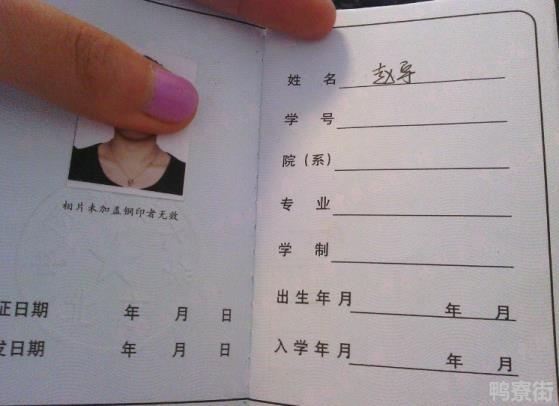 相片未加盖钢印者无效
证日期 年 月 日
发日期 年 月 日
姓 名 赵导
学 号
院（系）
专 业
学 制
出生年月 年 月
入学年月 年 月
鸭寮街